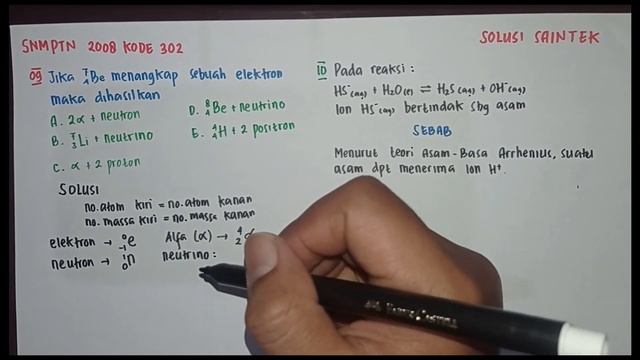 SNMPTN 2008 KODE 302
SOLUSI SAINTEK
09 Jika ⁷₄Be menangkap sebuah elektron
maka dihasilkan
A. 2α + neutron
B. ⁷₃Li + neutrino
C. α + 2 proton
D. ⁸₄Be + neutrino
E. ⁴₄H + 2 positron
SOLUSI
no.atom kiri = no.atom kanan
no.massa kiri = no.massa kanan
elektron → ⁰₋₁e
neutron → ¹₀n
Alfa (α) → ⁴₂α
neutrino :
10 Pada reaksi :
HS⁻(aq) + H₂O(l) ⇌ H₂S(aq) + OH⁻(aq)
Ion HS⁻(aq) bertindak sbg asam
SEBAB
Menurut teori Asam-Basa Arrhenius, suatu
asam dpt menerima Ion H⁺.